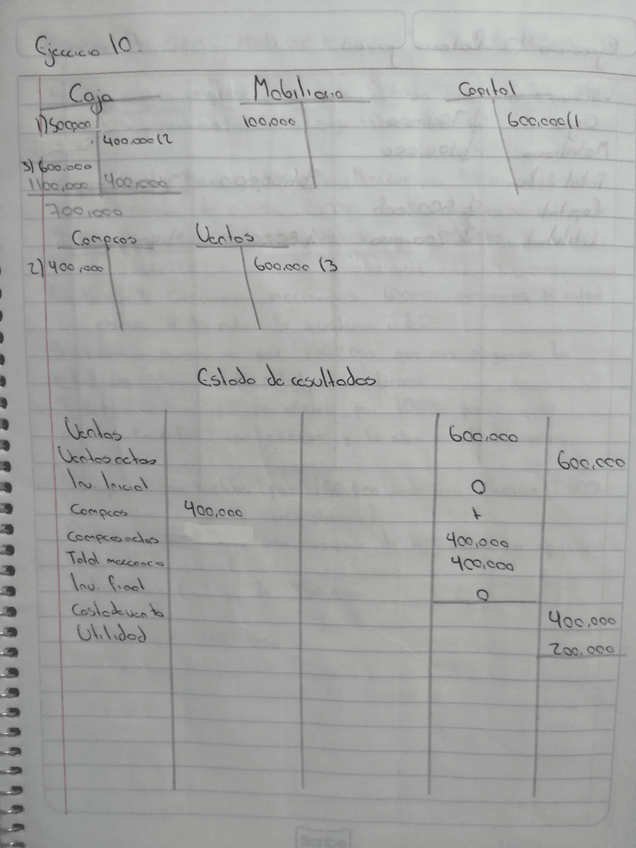 Ejercicio 10
Caja Mobiliario Capital
1) 500,000 100,000 600,000 (1
400,000 (2
3) 600,000
1,100,000 400,000
700,000
Compras Ventas
2) 400,000 600,000 (3
Estado de resultados
Ventas 600,000
Ventas netas 600,000
Inv. Inicial 0
Compras 400,000 +
Compras netas 400,000
Total mercancia 400,000
Inv. final 0
Costo de venta 400,000
Utilidad 200,000
Scribe